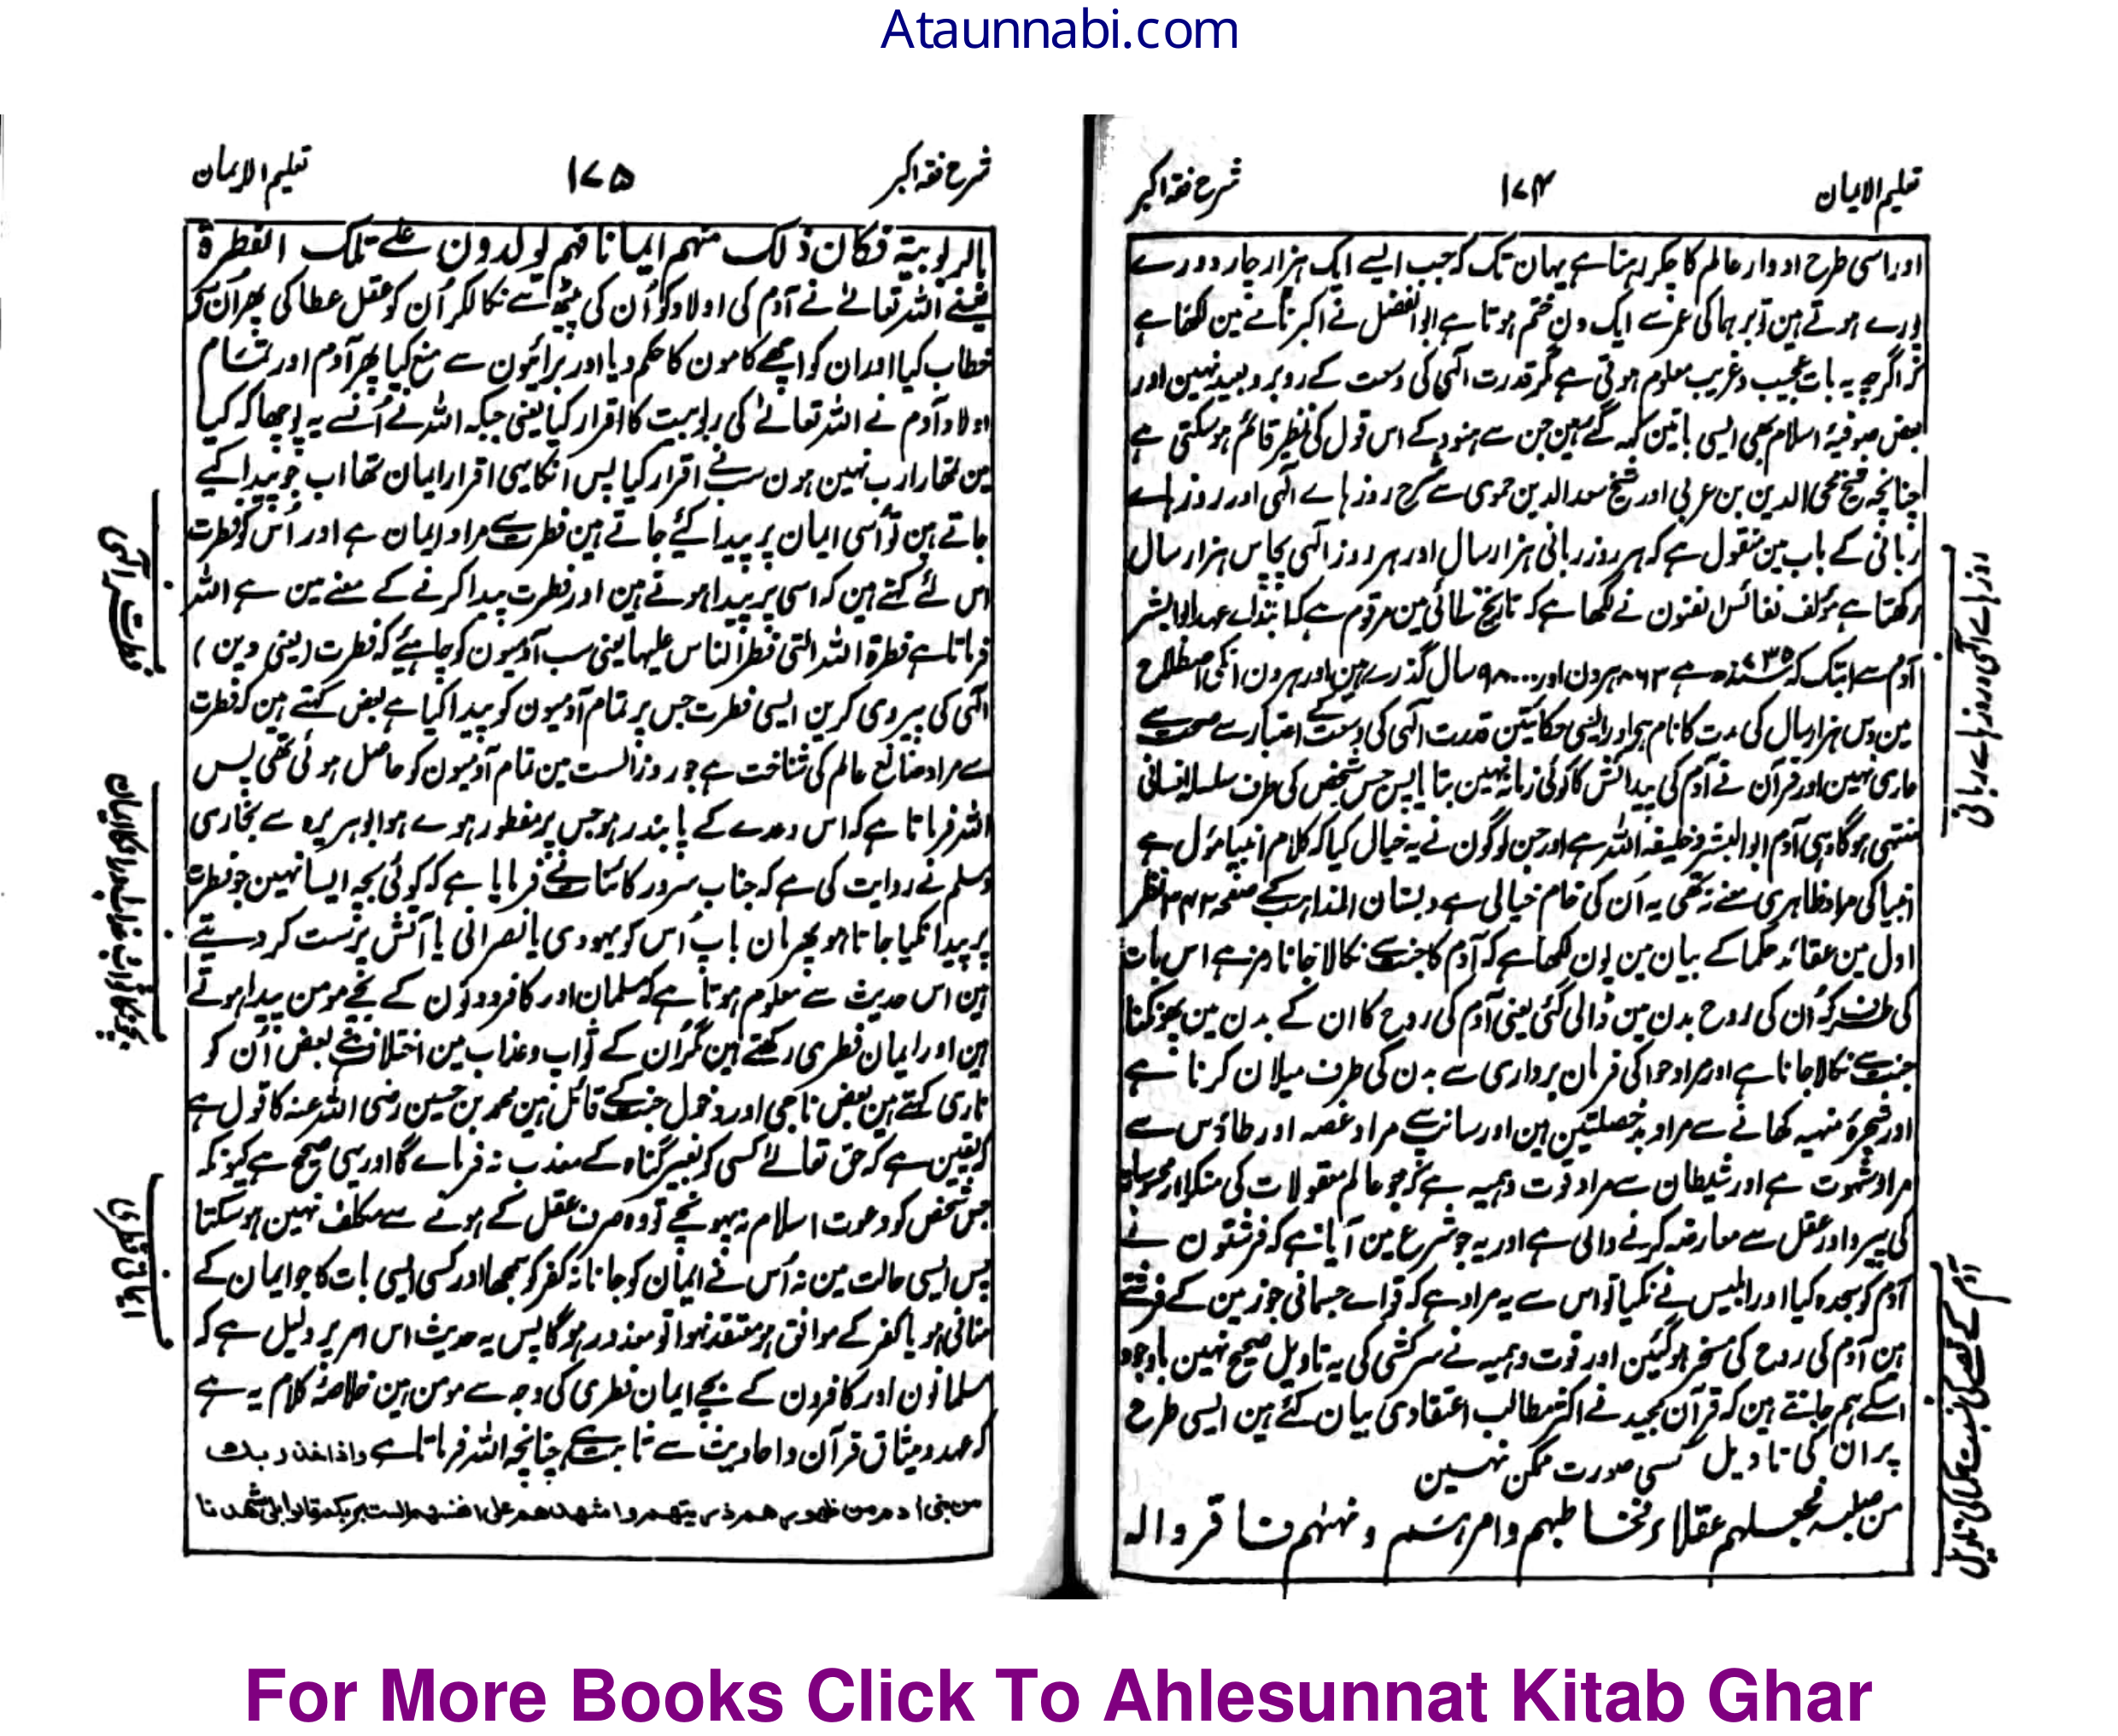 Ataunnabi.com
تعلیم الایمان ۱۷۴ شرح فقہ اکبر
اور اسی طرح ادوار عالم کا چکر رہتا ہے یہان تک کہ جب ایسے ایک ہزار چار دورے
پورے ہوتے ہین تو برہما کی عمر سے ایک دن ختم ہوتا ہے ابو الفضل نے اکبر نامے مین لکھا ہے
کہ اگرچہ یہ بات عجیب و غریب معلوم ہوتی ہے مگر قدرت الٰہی کی وسعت کے روبرو بعید نہین اور
بعض صوفیۂ اسلام بھی ایسی باتین کہہ گئے ہین جن سے ہنود کے اس قول کی نظیر قائم ہو سکتی ہے
چنانچہ شیخ محی الدین بن عربی اور شیخ سعد الدین حموی سے شرح روز ہاے الٰہی اور روز ہاے
ربانی کے باب مین منقول ہے کہ ہر روز ربانی ہزار سال اور ہر روز الٰہی پچاس ہزار سال
رکھتا ہے مؤلف نفائس الفنون نے لکھا ہے کہ تاریخ خطائی مین مرقوم ہے کہ ابتداے عہد ابو البشر
آدم سے ابتک کہ ۷۳۵ھ ہے ۸۸۶۳ ہرون اور ۹۸۰۰ سال گذرے ہین اور ہرون انکی اصطلاح
مین دس ہزار سال کی مدت کا نام ہے اور ایسی حکایتین قدرت الٰہی کی وسعت کے اعتبار سے صحت سے
عاری نہین اور قرآن نے آدم کی پیدائش کا کوئی زمانہ نہین بتایا پس جس شخص کی طرف سلسلہ انسانی
منتہی ہوگا وہی آدم ابو البشر و خلیفہ اللہ ہے اور جن لوگون نے یہ خیال کیا کہ کلام انبیا مؤل ہے
انبیا کی مراد ظاہری معنے نہ تھی یہ اُن کی خام خیالی ہے دبستان المذاہب کے صفحہ ۳۴۲ نظر
اول مین عقائد حکما کے بیان مین یون لکھا ہے کہ آدم کا جنت سے نکالا جانا رمز ہے اس بات
کی طرف کہ اُن کی روح بدن مین ڈالی گئی یعنی آدم کی روح کا ان کے بدن مین پھونکنا
جنت سے نکالا جانا ہے اور مراد حوا کی فرمان برداری سے بدن کی طرف میلان کرنا ہے
اور شجرۂ منہیہ کھانے سے مراد بد خصلتین ہین اور سانپ سے مراد غصہ اور طاؤس سے
مراد شہوت ہے اور شیطان سے مراد قوت وہمیہ ہے کہ جو عالم معقولات کی منکر اور محسوسات
کی پیرو اور عقل سے معارضہ کرنے والی ہے اور یہ جو شرع مین آیا ہے کہ فرشتون نے
آدم کو سجدہ کیا اور ابلیس نے نکیا تو اس سے یہ مراد ہے کہ قواے جسمانی جو زمین کے فرشتے
ہین آدم کی روح کی مسخر ہوگئین اور قوت وہمیہ نے سرکشی کی یہ تاویل صحیح نہین باوجود
اسکے ہم جانتے ہین کہ قرآن مجید نے اکثر مطالب اعتقادی بیان کئے ہین ایسی طرح
پر ان کی تاویل کسی صورت ممکن نہین
من صلبہ فجعلہم عقلاء فخاطبہم وامرہم ونہٰہم فاقروا لہ
روز ہاے الٰہی و روز ہاے ربانی
آدم کے قصے کی نسبت حکما کی تاویل
شرح فقہ اکبر ۱۷۵ تعلیم الایمان
بالربوبیۃ فکان ذلک منہم ایمانا فہم یولدون علے تلک الفطرۃ
یعنے اللہ تعالےٰ نے آدم کی اولاد کو اُن کی پیٹھ سے نکالکر اُن کو عقل عطا کی پھر اُن کو
خطاب کیا اور ان کو اچھے کامون کا حکم دیا اور برائیون سے منع کیا پھر آدم اور تمام
اولاد آدم نے اللہ تعالےٰ کی ربوبیت کا اقرار کیا یعنی جبکہ اللہ نے اُنسے یہ پوچھا کہ کیا
مین تمھارا رب نہین ہون سب نے اقرار کیا پس انکا یہی اقرار ایمان تھا اب جو پیدا کیے
جاتے ہین تو اُسی ایمان پر پیدا کیئے جاتے ہین فطرت سے مراد ایمان ہے اور اُس کو فطرت
اس لئے کہتے ہین کہ اسی پر پیدا ہوتے ہین اور فطرت پیدا کرنے کے معنے مین ہے اللہ
فرماتا ہے فطرۃ اللہ التی فطر الناس علیہا یعنی سب آدمیون کو چاہیئے کہ فطرت (یعنی دین)
الٰہی کی پیروی کرین ایسی فطرت جس پر تمام آدمیون کو پیدا کیا ہے بعض کہتے ہین کہ فطرت
سے مراد صانع عالم کی شناخت ہے جو روز الست مین تمام آدمیون کو حاصل ہوئی تھی پس
اللہ فرماتا ہے کہ اس وعدے کے پابند رہو جس پر مفطور ہوے ہو ابو ہریرہ سے بخاری
و مسلم نے روایت کی ہے کہ جناب سرور کائنات نے فرمایا ہے کہ کوئی بچہ ایسا نہین جو فطرت
پر پیدا نکیا جاتا ہو پھر مان باپ اُس کو یہودی یا نصرانی یا آتش پرست کر دیتے
ہین اس حدیث سے معلوم ہوتا ہے کہ مسلمان اور کافر دونون کے بچے مومن پیدا ہوتے
ہین اور ایمان فطری رکھتے ہین مگر اُن کے ثواب و عذاب مین اختلاف ہے بعض اُن کو
ناری کہتے ہین بعض ناجی اور دخول جنت کے قائل ہین محمد بن حسین رضی اللہ عنہ کا قول ہے
کہ یقین ہے کہ حق تعالےٰ کسی کو بغیر گناہ کے معذب نہ فرماے گا اور یہی صحیح ہے کیونکہ
جس شخص کو دعوت اسلام نہ پہونچے تو وہ صرف عقل کے ہونے سے مکلف نہین ہو سکتا
پس ایسی حالت مین نہ اُس نے ایمان کو جانا نہ کفر کو سمجھا اور کسی ایسی بات کا جو ایمان کے
منافی ہو یا کفر کے موافق ہو معتقد نہوا تو معذور ہوگا پس یہ حدیث اس امر پر دلیل ہے کہ
مسلمانون اور کافرون کے بچے ایمان فطری کی وجہ سے مومن ہین خلاصۂ کلام یہ ہے
کہ عہد و میثاق قرآن و احادیث سے ثابت ہے چنانچہ اللہ فرماتا ہے واذ اخذ ربک
من بنی ادم من ظہورہم ذریتہم واشہدہم علی انفسہم الست بربکم قالوا بلی شہدنا
فطرت الٰہی
ایمان فطری
For More Books Click To Ahlesunnat Kitab Ghar